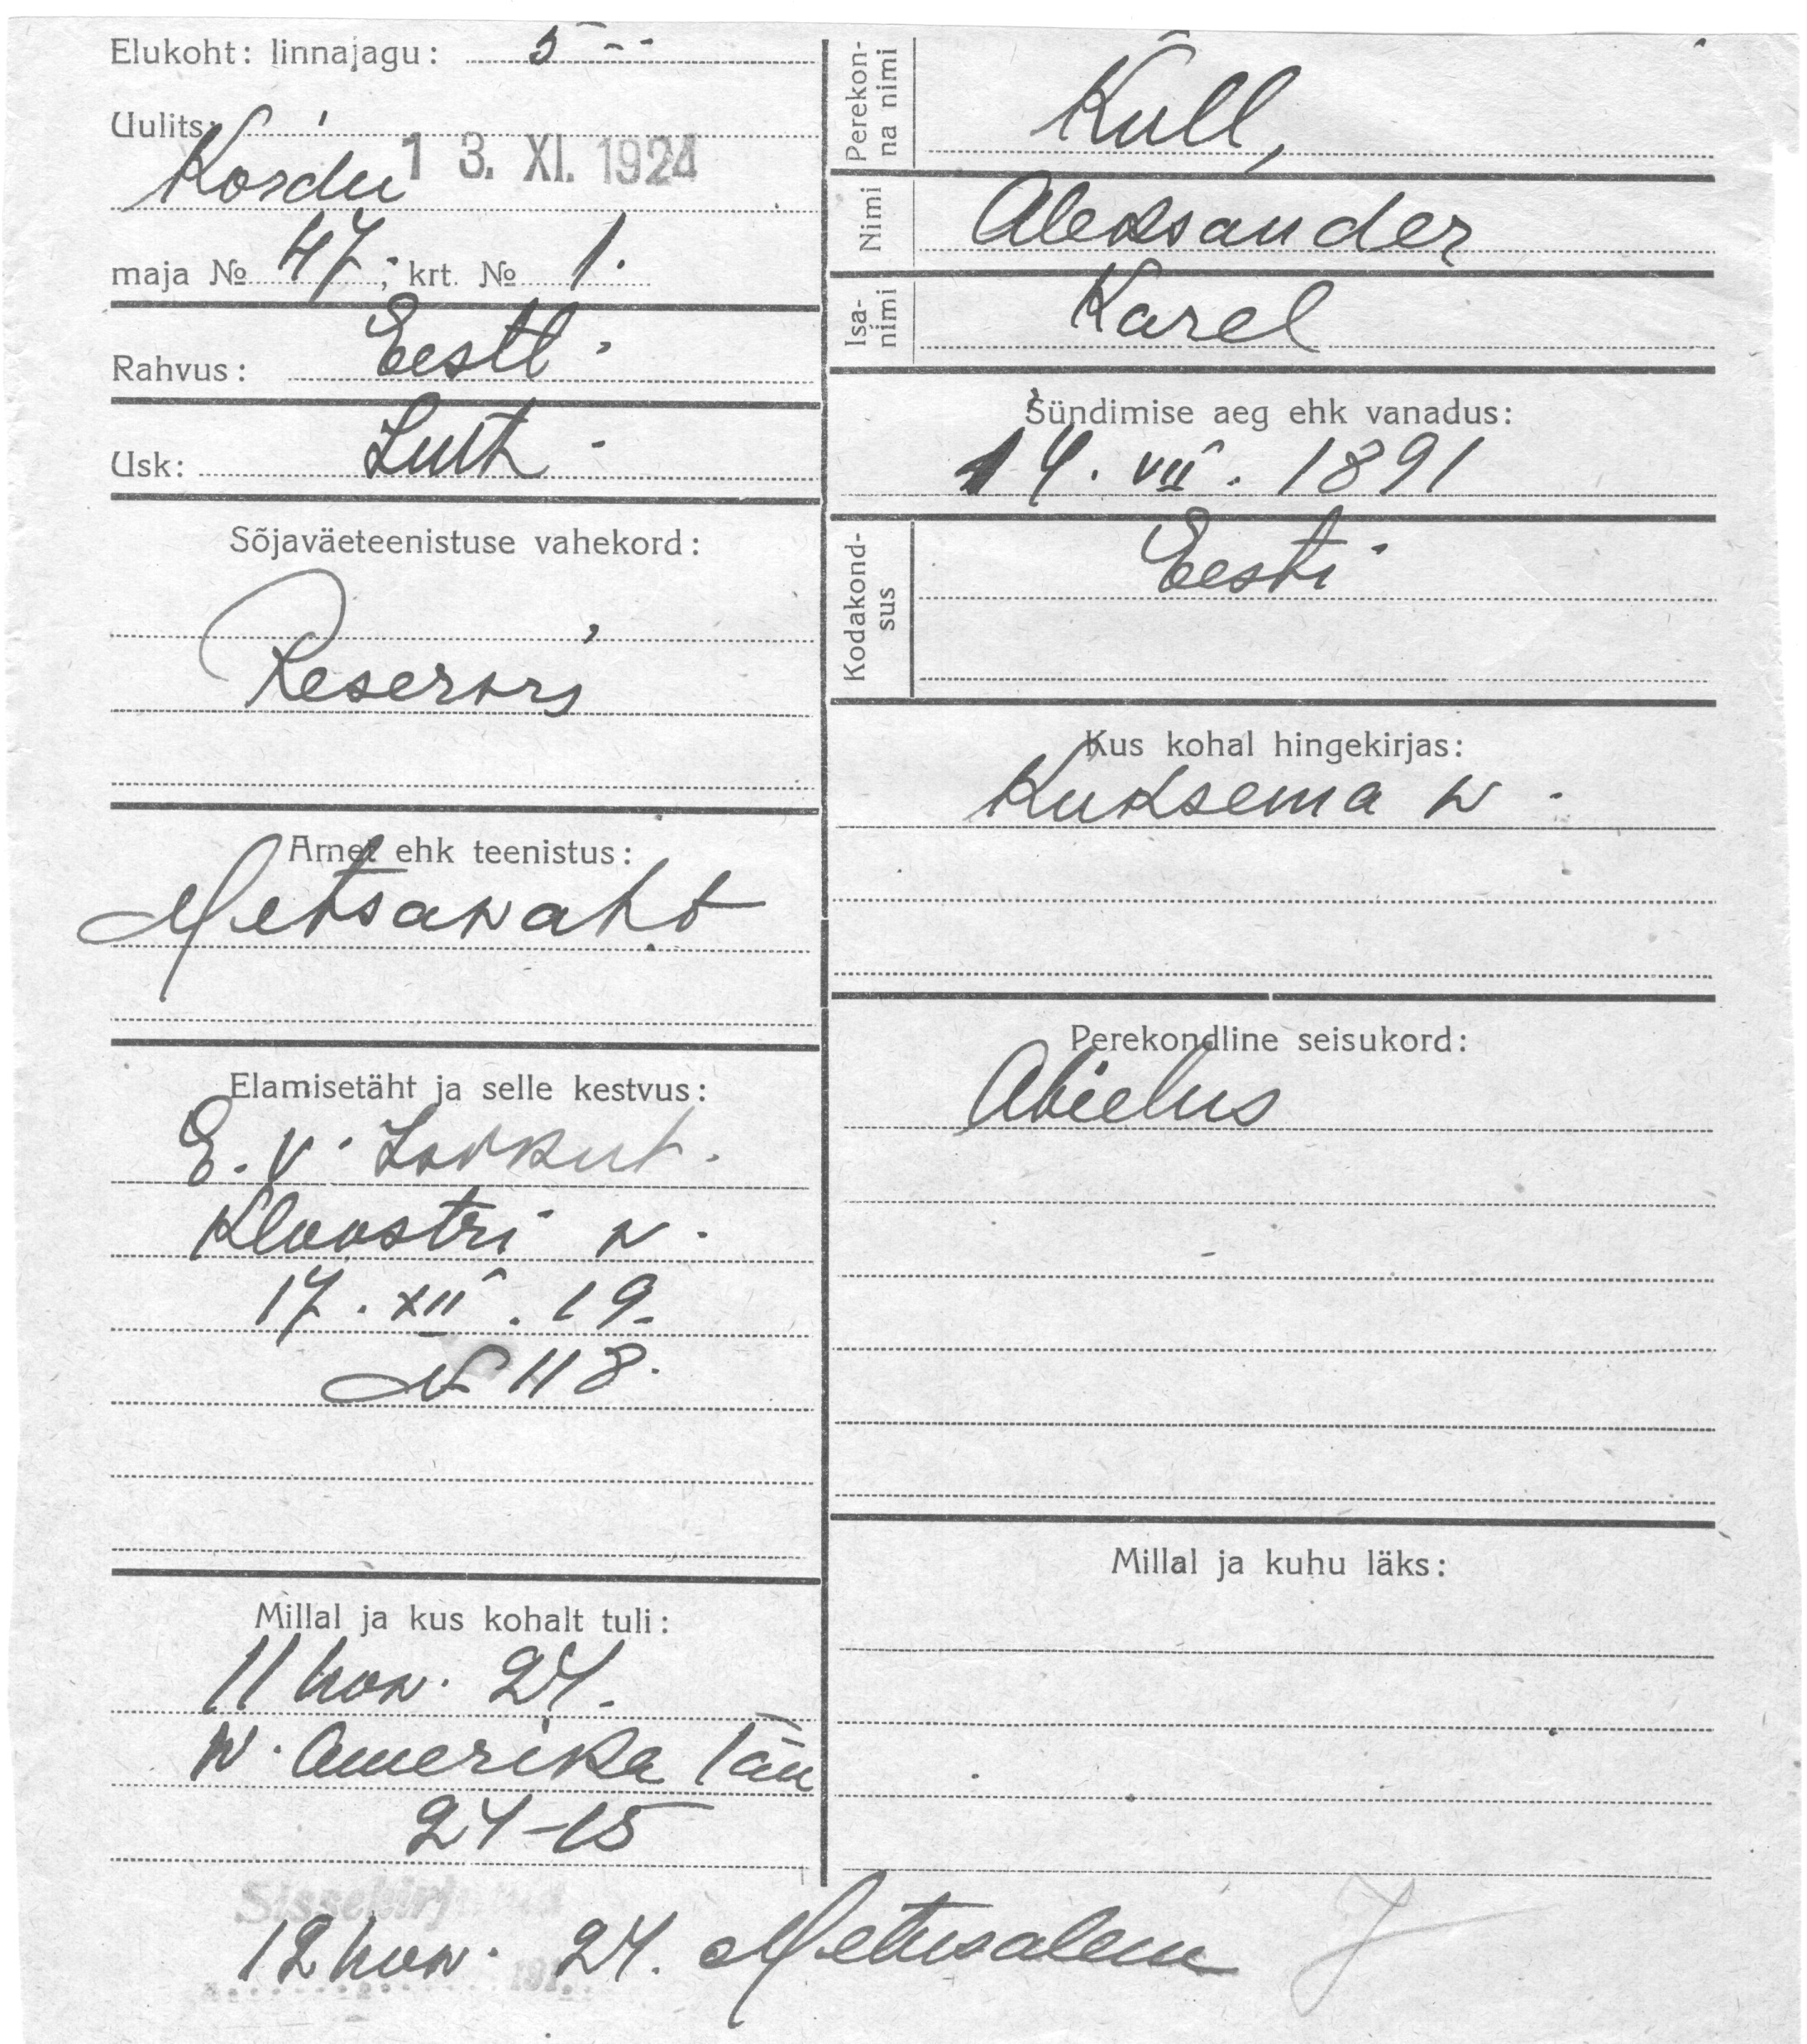 Elukoht: linnajagu: 5
Uulits:
Kordu 13. XI. 1924
maja № 47; krt. № 1.
Rahvus: Eesti
Usk: Luth
Sõjaväeteenistuse vahekord:
Reservis
Amet ehk teenistus:
Metsawaht
Elamisetäht ja selle kestvus:
E. V.
Kloostri w.
17. XII. 19.
№ 118.
Millal ja kus kohalt tuli:
11 now. 24.
W. Amerika tän
24-15
Sissekirjutud
12 now. 24. Metusalem
191
Perekon-
na nimi
Kull,
Nimi
Aleksander
Isa-
nimi
Karel
Sündimise aeg ehk vanadus:
14. VII. 1891
Kodakond-
sus
Eesti
Kus kohal hingekirjas:
Kuksema w.
Perekondline seisukord:
Abielus
Millal ja kuhu läks: